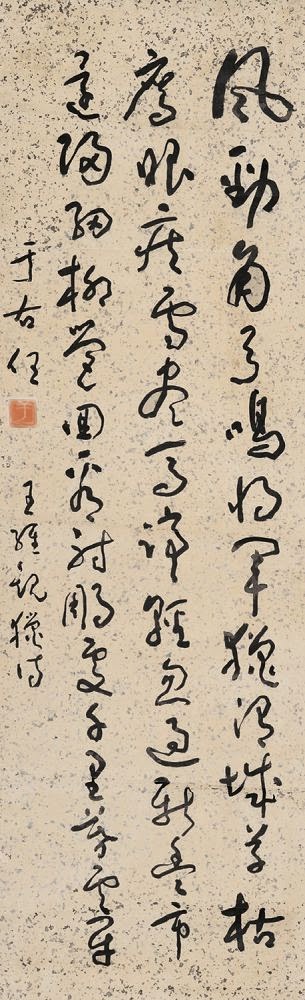 風勁角弓鳴將軍獵渭城草枯
鷹眼疾雪盡馬蹄輕忽過新豐市
還歸細柳營回看射鵰處千里暮雲平
于右任
王維觀獵詩